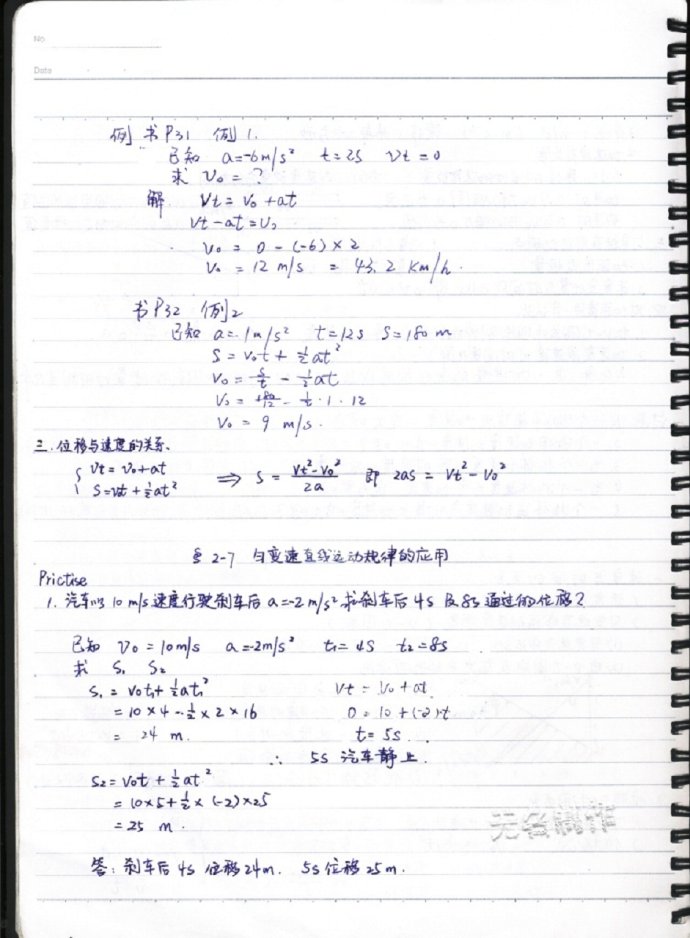 No.
Date
例 书P31 例1.
已知 a=-6m/s² t=2s Vt=0
求 V₀=?
解 Vt=V₀+at
Vt-at=V₀
V₀ = 0-(-6)×2
V₀ = 12 m/s = 43.2 km/h.
书P32 例2
已知 a=1m/s² t=12s S=180m
S = V₀t + ½at²
V₀ = S/t - ½at
V₀ = 180/12 - ½·1·12
V₀ = 9 m/s.
三.位移与速度的关系.
{ Vt=V₀+at
S=V₀t+½at² ⟹ S = (Vt²-V₀²)/2a 即 2aS = Vt²-V₀²
§ 2-7 匀变速直线运动规律的应用
Prictise
1. 汽车以10m/s速度行驶刹车后a=-2m/s²求刹车后4s及8s通过的位移?
已知 V₀=10m/s a=-2m/s² t₁=4s t₂=8s
求 S₁ S₂
S₁ = V₀t₁+½at₁² Vt = V₀+at
= 10×4-½×2×16 0=10+(-2)·t
= 24 m. t=5s.
∴ 5s 汽车静止.
S₂=V₀t+½at²
= 10×5+½×(-2)×25
= 25 m.
答: 刹车后4s位移24m. 5s位移25m.
无名制作